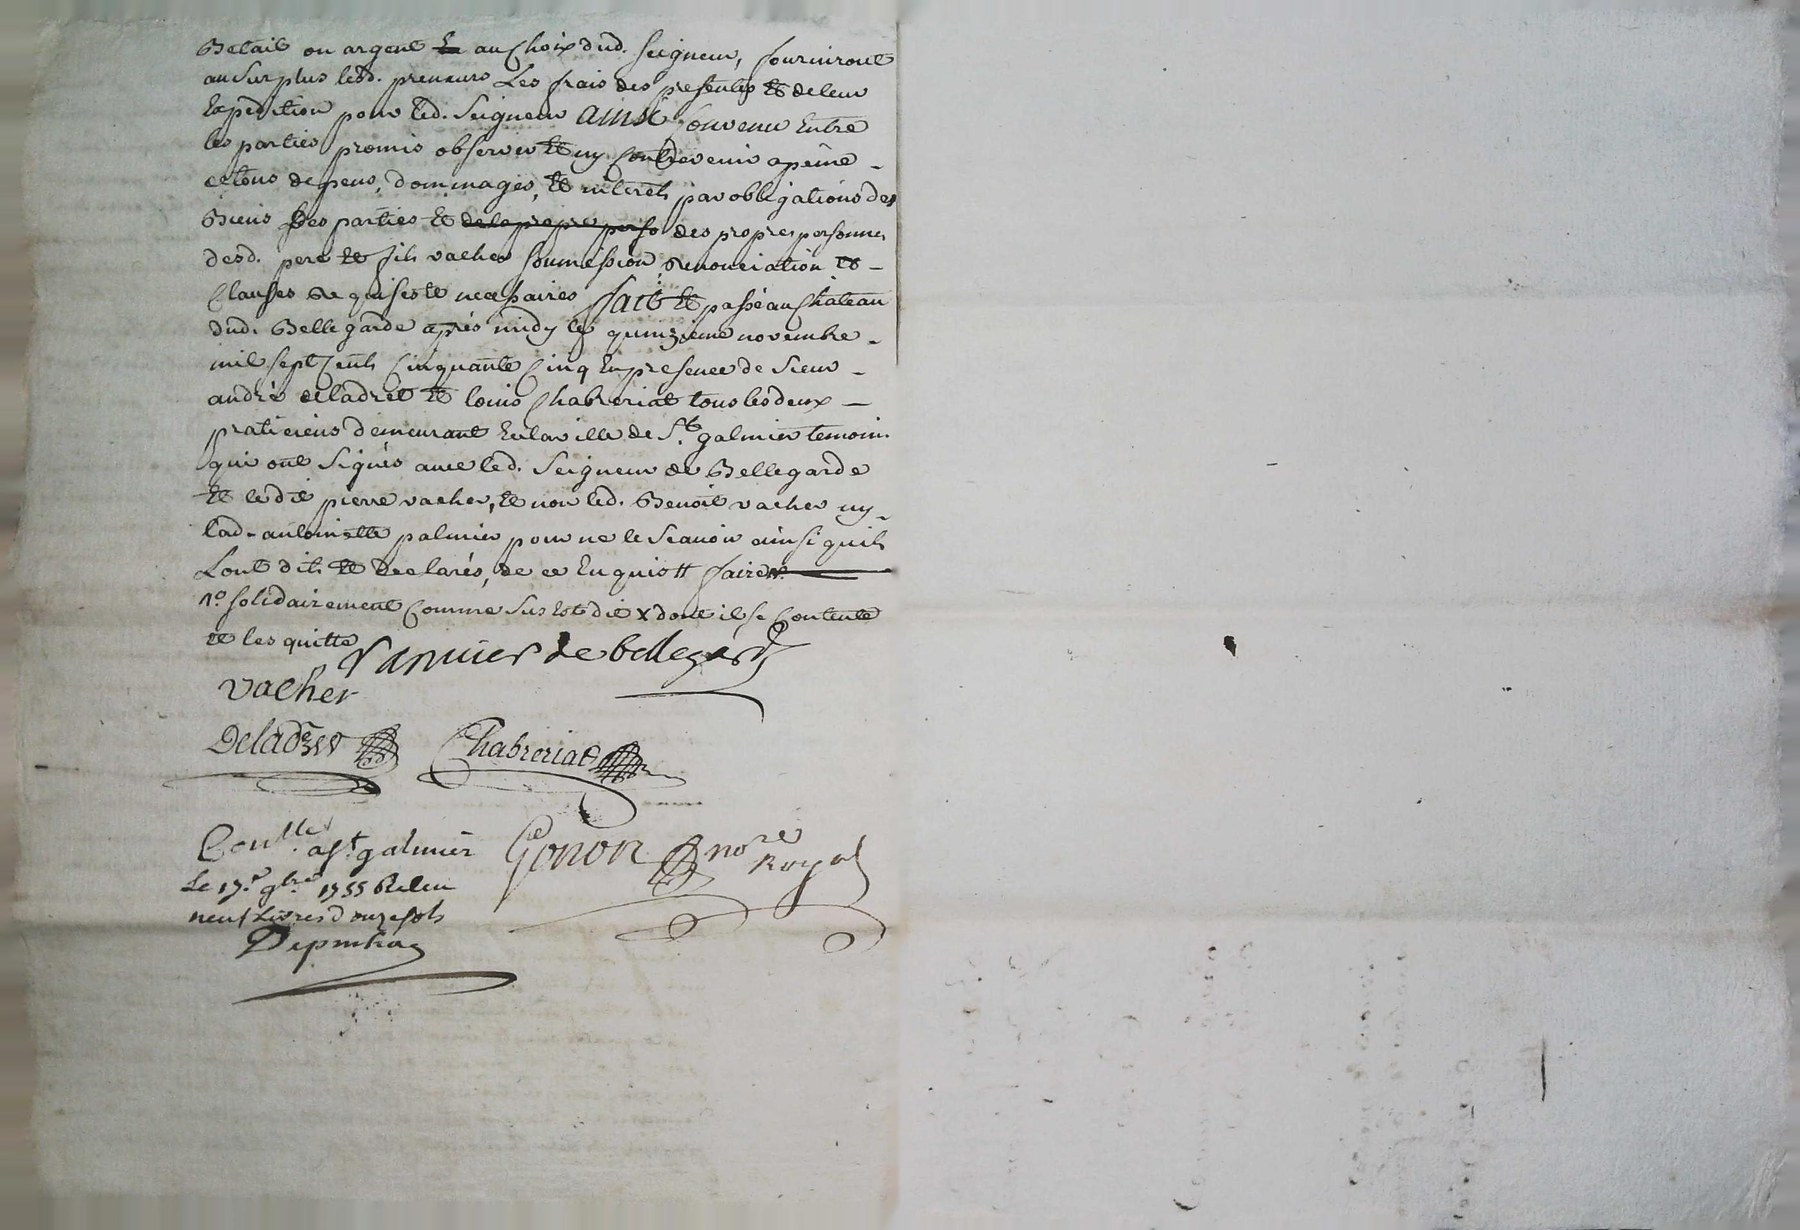 Betail ou argent Et au Choix dud. seigneur, fourniront
au surplus lesd. preneurs Les frais des presentes Et de leur
Expedition pour led. Seigneur ainsi Convenu Entre
les parties promis observer Et ny Contrevenir a peine -
de tous depens, dommages, Et interets par obligations des
Biens des parties Et de la propre perso des propres personnes
desd. pere Et fils vacher soumission, Renonciation Et -
Clauses Requises Et necessaires fait Et passé au Chateau
dud. Bellegarde après midy le quinzieme novembre -
mil sept Cents Cinquante Cinq En presence de Sieur -
andré deladret Et louis Chabreriat tous les deux -
praticiens demeurant En la ville de St. galmier temoins
qui ont Signés avec led. Seigneur de Bellegarde
Et le dit pierre vacher, Et non led. Benoit vacher ny -
lad. antoinette palmier pour ne le Scavoir ainsi quils
Lont dits Et Declarés, de ce Enquis faire
solidairement Comme Sus Est dit x dont il se Contente
et les quitte
de bellegarde
vacher
Deladret
Chabreriat
Conllé a St. galmier
Gonon nore Royal
Le 17e. 9bre 1755 Recu
neuf Livres douze sols